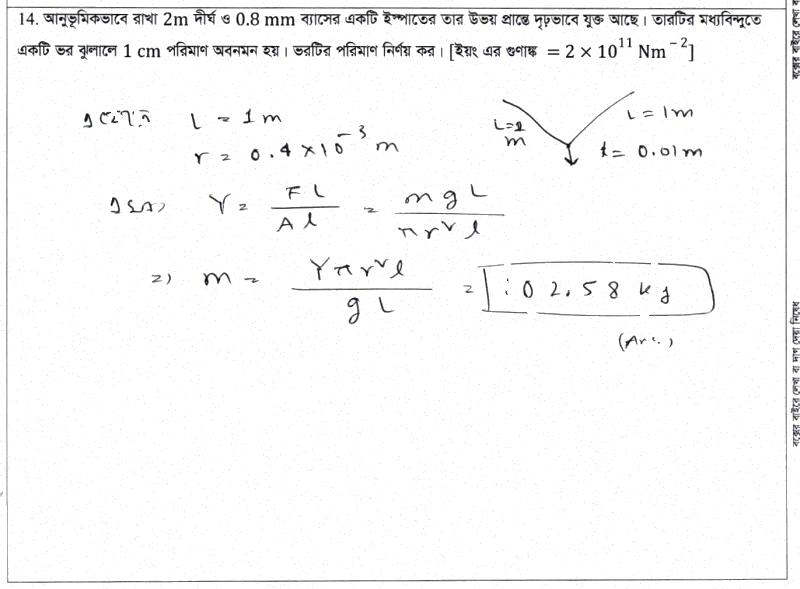 14. আনুভূমিকভাবে রাখা 2m দীর্ঘ ও 0.8 mm ব্যাসের একটি ইস্পাতের তার উভয় প্রান্তে দৃঢ়ভাবে যুক্ত আছে। তারটির মধ্যবিন্দুতে
একটি ভর ঝুলালে 1 cm পরিমাণ অবনমন হয়। ভরটির পরিমাণ নির্ণয় কর। [ইয়ং এর গুণাঙ্ক = 2 × 10^11 Nm^-2]
L = 1m
r = 0.4 × 10^-3 m
L = 1m
l = 0.01m
Y = FL / Al = mgL / πr²l
=> m = Yπr²l / gL = 02.58 kg
(Ans.)